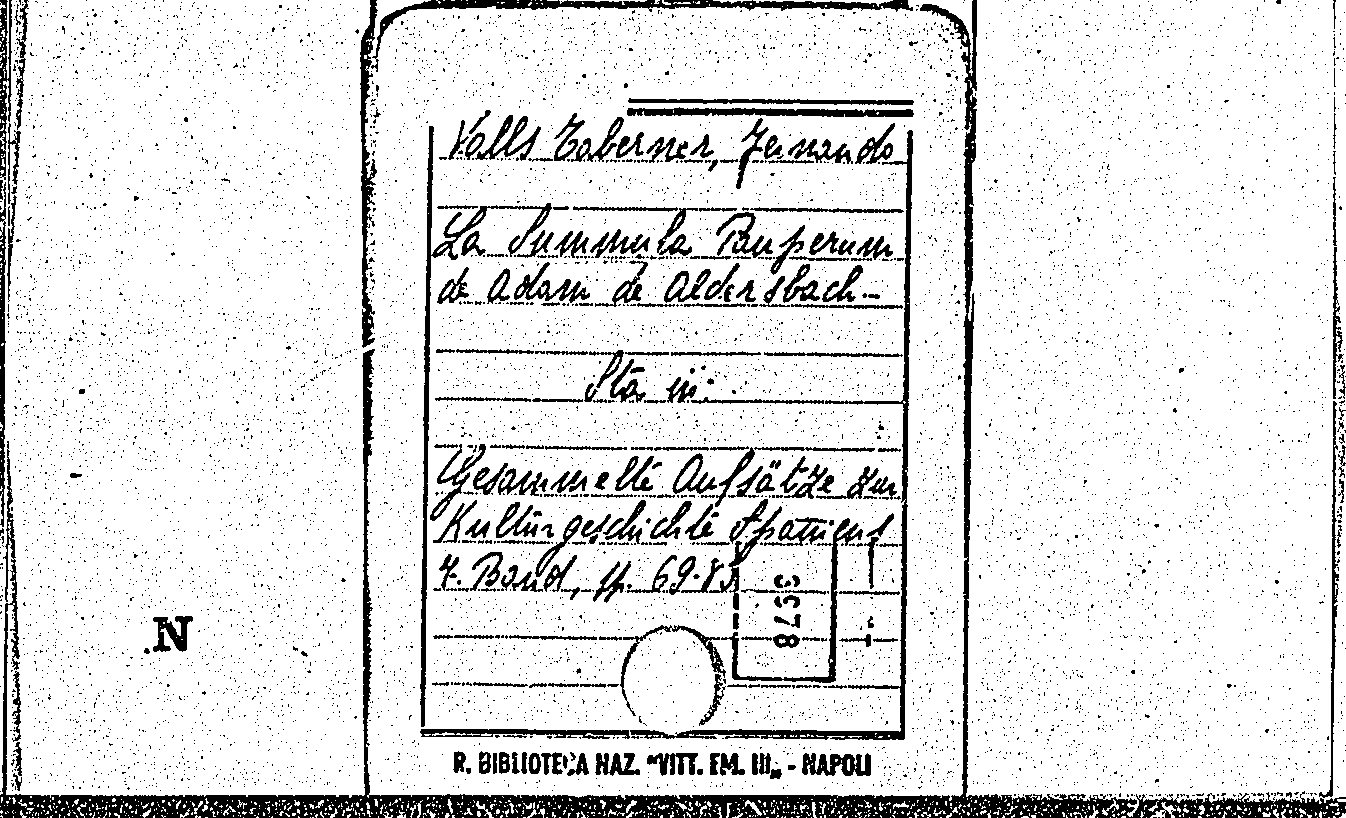 Valls Taberner, Fernando
La Summula Pauperum
de Adam de Aldersbach-
Sta in:
Gesammelte Aufsätze zur
Kulturgeschichte Spaniens
7. Band, pp. 69-83
3978
N
R. BIBLIOTECA NAZ. "VITT. EM. III„ - NAPOLI